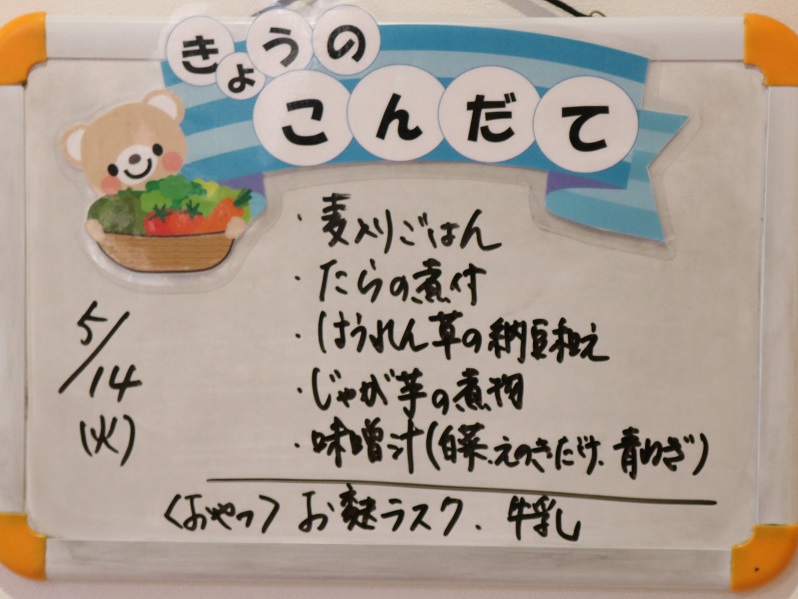 きょうの
こんだて
・麦入りごはん
・たらの煮付
・ほうれん草の納豆和え
5/14
(火)
・じゃが芋の煮物
・味噌汁(白菜、えのきたけ、青ねぎ)
〈おやつ〉お麩ラスク、牛乳